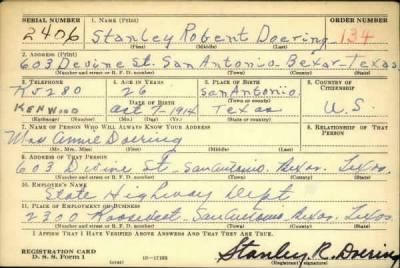 SERIAL NUMBER 1. NAME (Print) ORDER NUMBER
2406 Stanley Robert Doering 134
(First) (Middle) (Last)
2. ADDRESS (Print)
603 Devine St. San Antonio Bexar Texas
(Number and street or R. F. D. number) (Town) (County) (State)
3. TELEPHONE 4. AGE IN YEARS 5. PLACE OF BIRTH 6. COUNTRY OF CITIZENSHIP
K5280 26 San Antonio
KENWOOD DATE OF BIRTH (Town or county)
Oct 7 1914 Texas U.S.
(Exchange) (Number) (Mo.) (Day) (Yr.) (State or country)
7. NAME OF PERSON WHO WILL ALWAYS KNOW YOUR ADDRESS 8. RELATIONSHIP OF THAT PERSON
Mrs Annie Doering
(Mr., Mrs., Miss) (First) (Middle) (Last)
9. ADDRESS OF THAT PERSON
603 Devine St San Antonio Bexar Texas
(Number and street or R. F. D. number) (Town) (County) (State)
10. EMPLOYER'S NAME
State Highway Dept
11. PLACE OF EMPLOYMENT OR BUSINESS
2300 Roosevelt San Antonio Bexar Texas
(Number and street or R. F. D. number) (Town) (County) (State)
I AFFIRM THAT I HAVE VERIFIED ABOVE ANSWERS AND THAT THEY ARE TRUE.
REGISTRATION CARD
D. S. S. Form 1 Stanley R. Doering
(Registrant's signature)